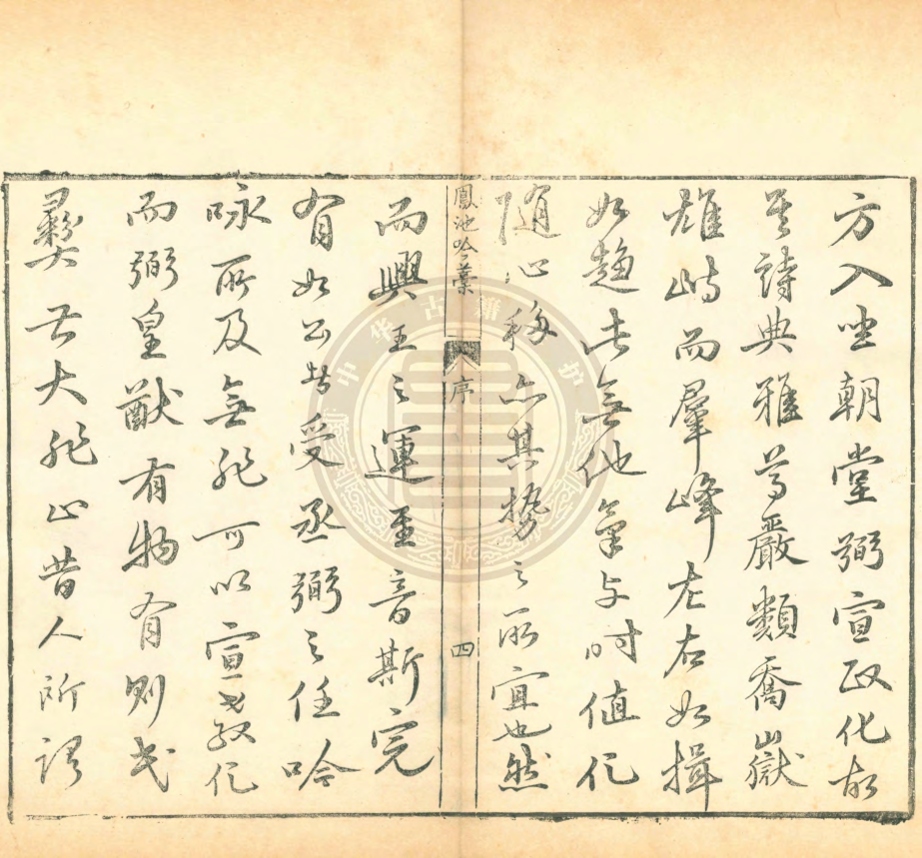 方入坐朝堂弼宣政化故
其詩典雅尊嚴類喬嶽
雄峙而羣峰左右如揖
如趨此無他氣与时值化
隨心移亦其勢之所宜也然
鳳池吟藁
序
四
而興王之運至音斯完
有如公者受丞弼之任吟
咏所及無非可以宣教化
而弼皇猷有物有則民
彝大非止昔人所謂
中华古籍保护